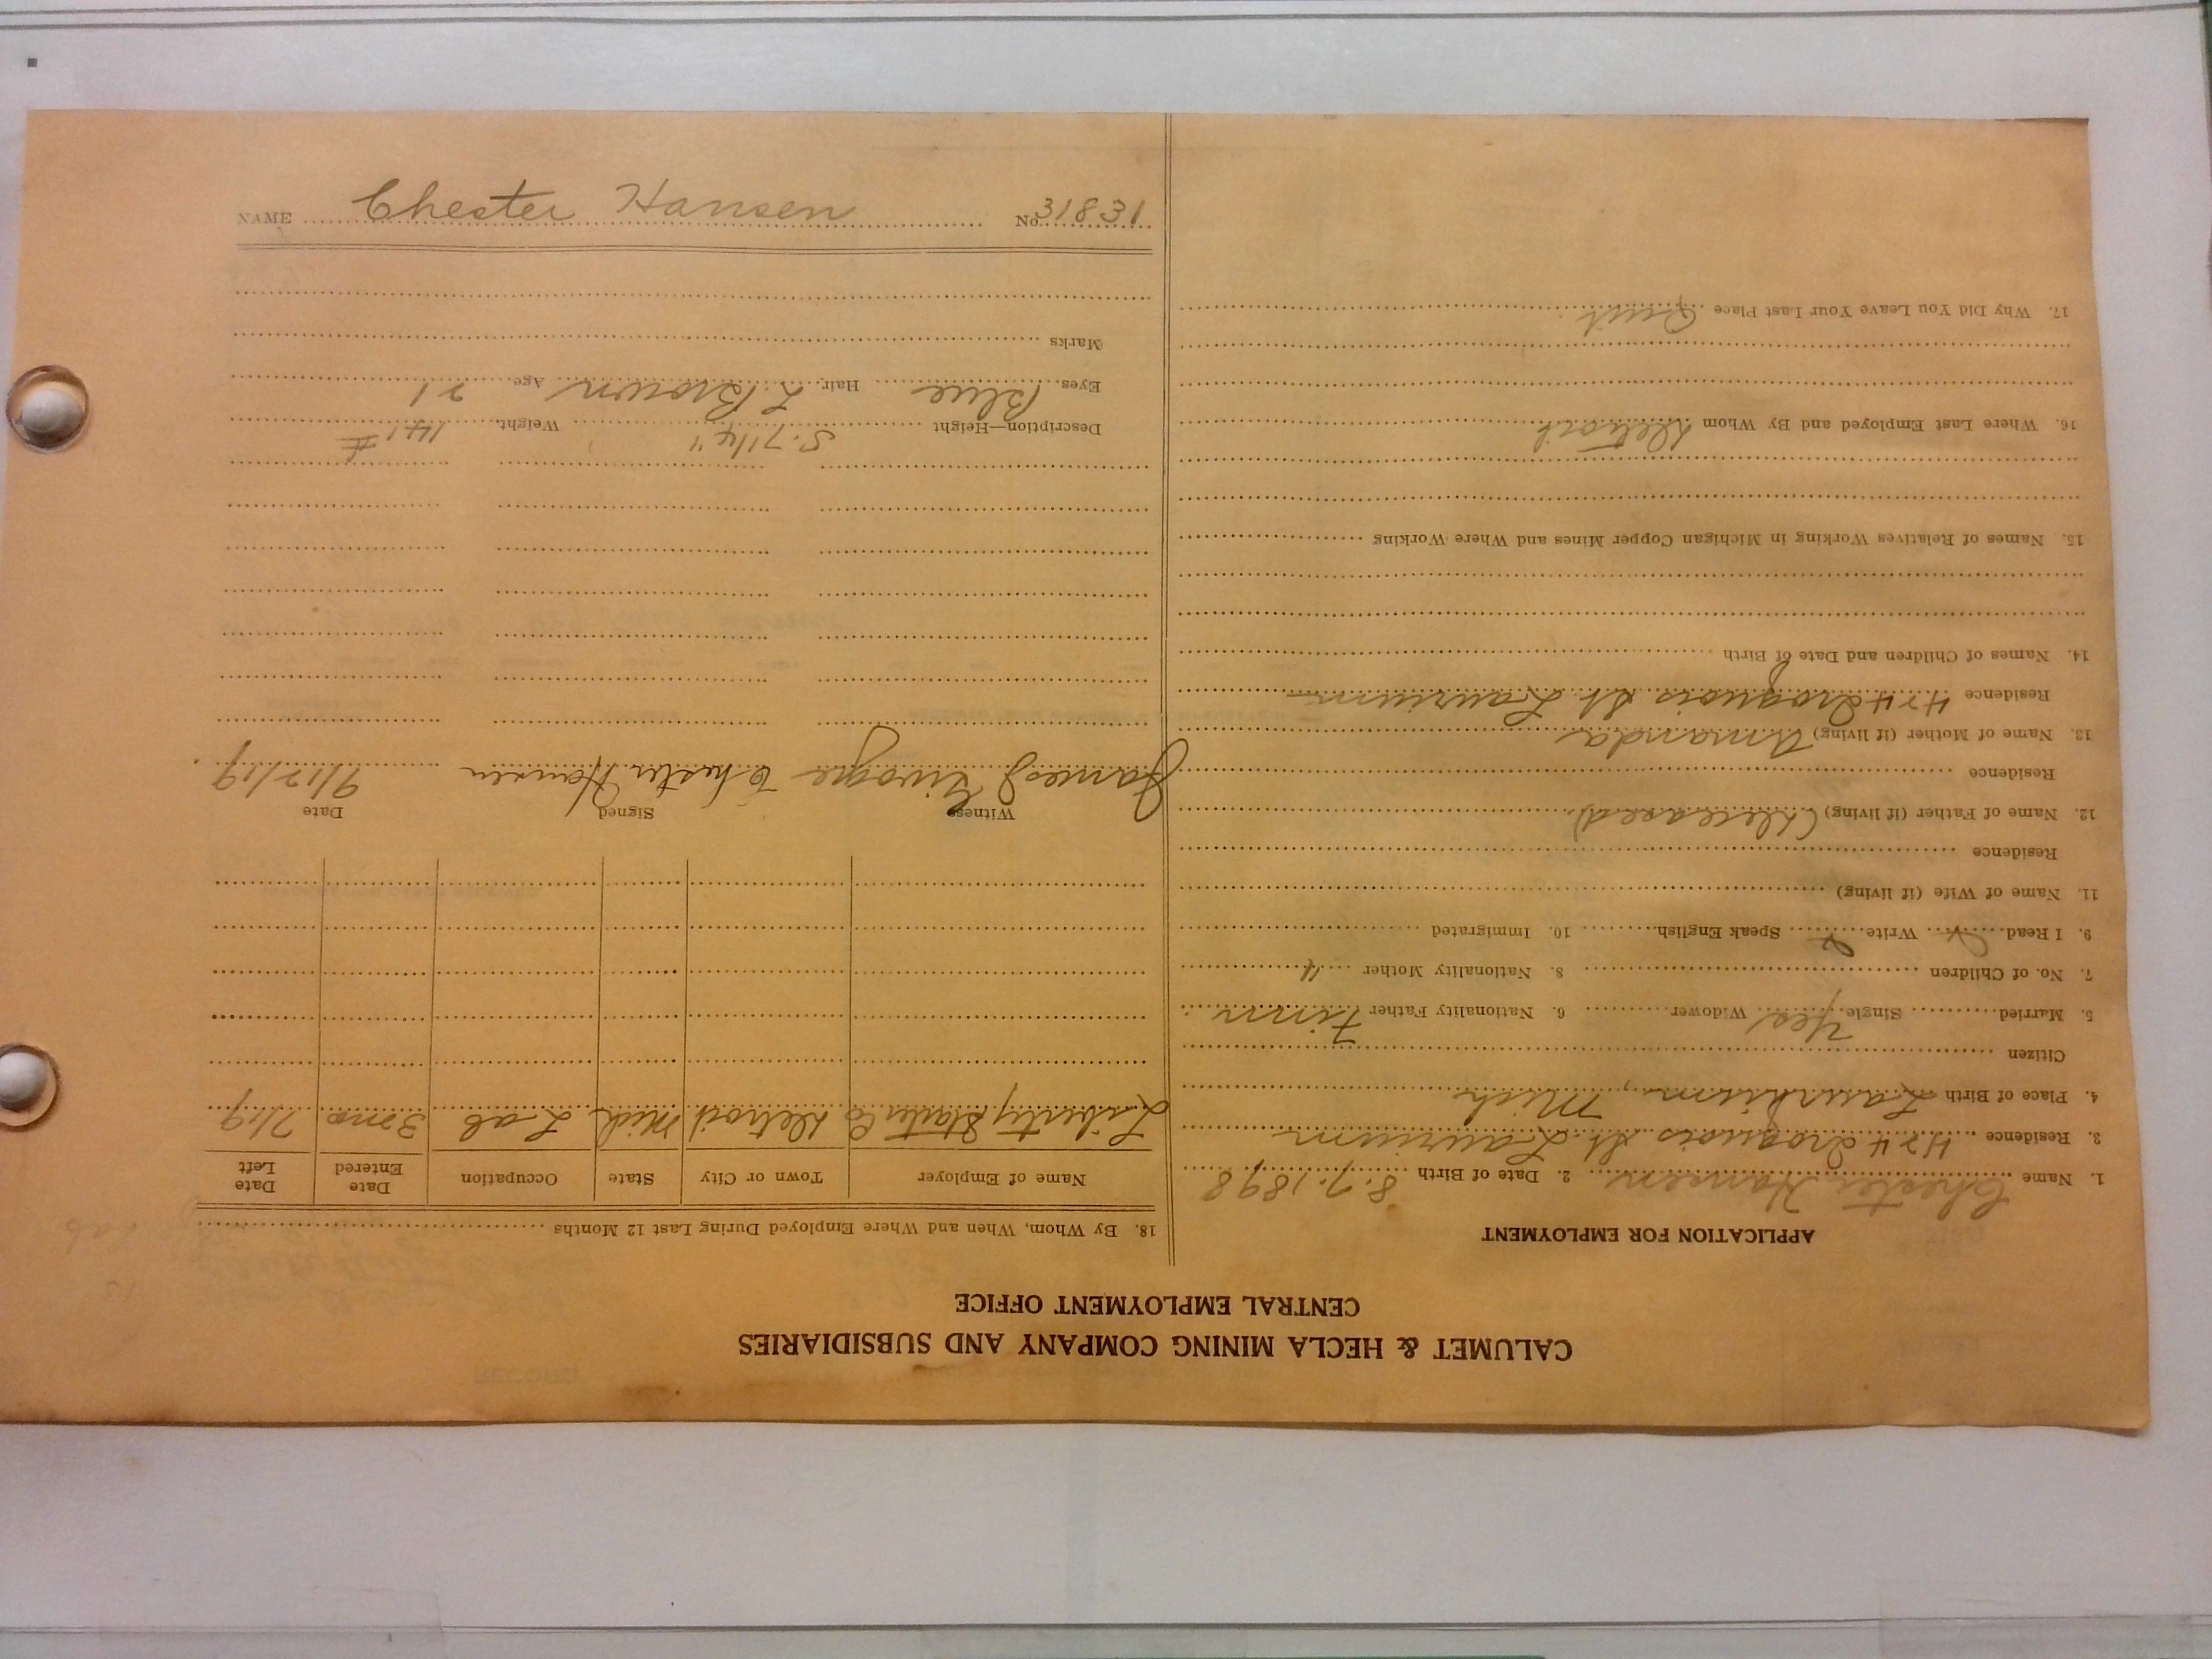 CALUMET & HECLA MINING COMPANY AND SUBSIDIARIES
CENTRAL EMPLOYMENT OFFICE
APPLICATION FOR EMPLOYMENT
1. Name Chester Hansen 2. Date of Birth 8.7.1898
3. Residence 424 Iroquois St Laurium
4. Place of Birth Laurium, Mich
Citizen
5. Married Single Yes Widower 6. Nationality Father Finn
7. No. of Children 8. Nationality Mother "
9. I Read Write Speak English 10. Immigrated
11. Name of Wife (if living)
Residence
12. Name of Father (if living) (Deceased)
Residence
13. Name of Mother (if living) Amanda
Residence 424 Iroquois St Laurium
14. Names of Children and Date of Birth
15. Names of Relatives Working in Michigan Copper Mines and Where Working
16. Where Last Employed and By Whom Detroit
17. Why Did You Leave Your Last Place Quit
18. By Whom, When and Where Employed During Last 12 Months
Name of Employer Town or City State Occupation Date Entered Date Left
Liberty Co Detroit Mich Lab 3 mo 7/19
Witness Signed Date
James Chester Hansen 9/12/19
Description—Height 5.7 1/4" Weight 141 #
Eyes Blue Hair L. Brown Age 21
Marks
NAME Chester Hansen No. 31831